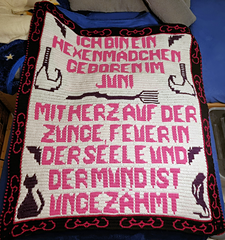 ICH BIN EIN
HEXENMÄDCHEN
GEBOREN IM
JUNI
MIT HERZ AUF DER
ZUNGE, FEUER IN
DER SEELE UND
DER MUND IST
UNGEZÄHMT